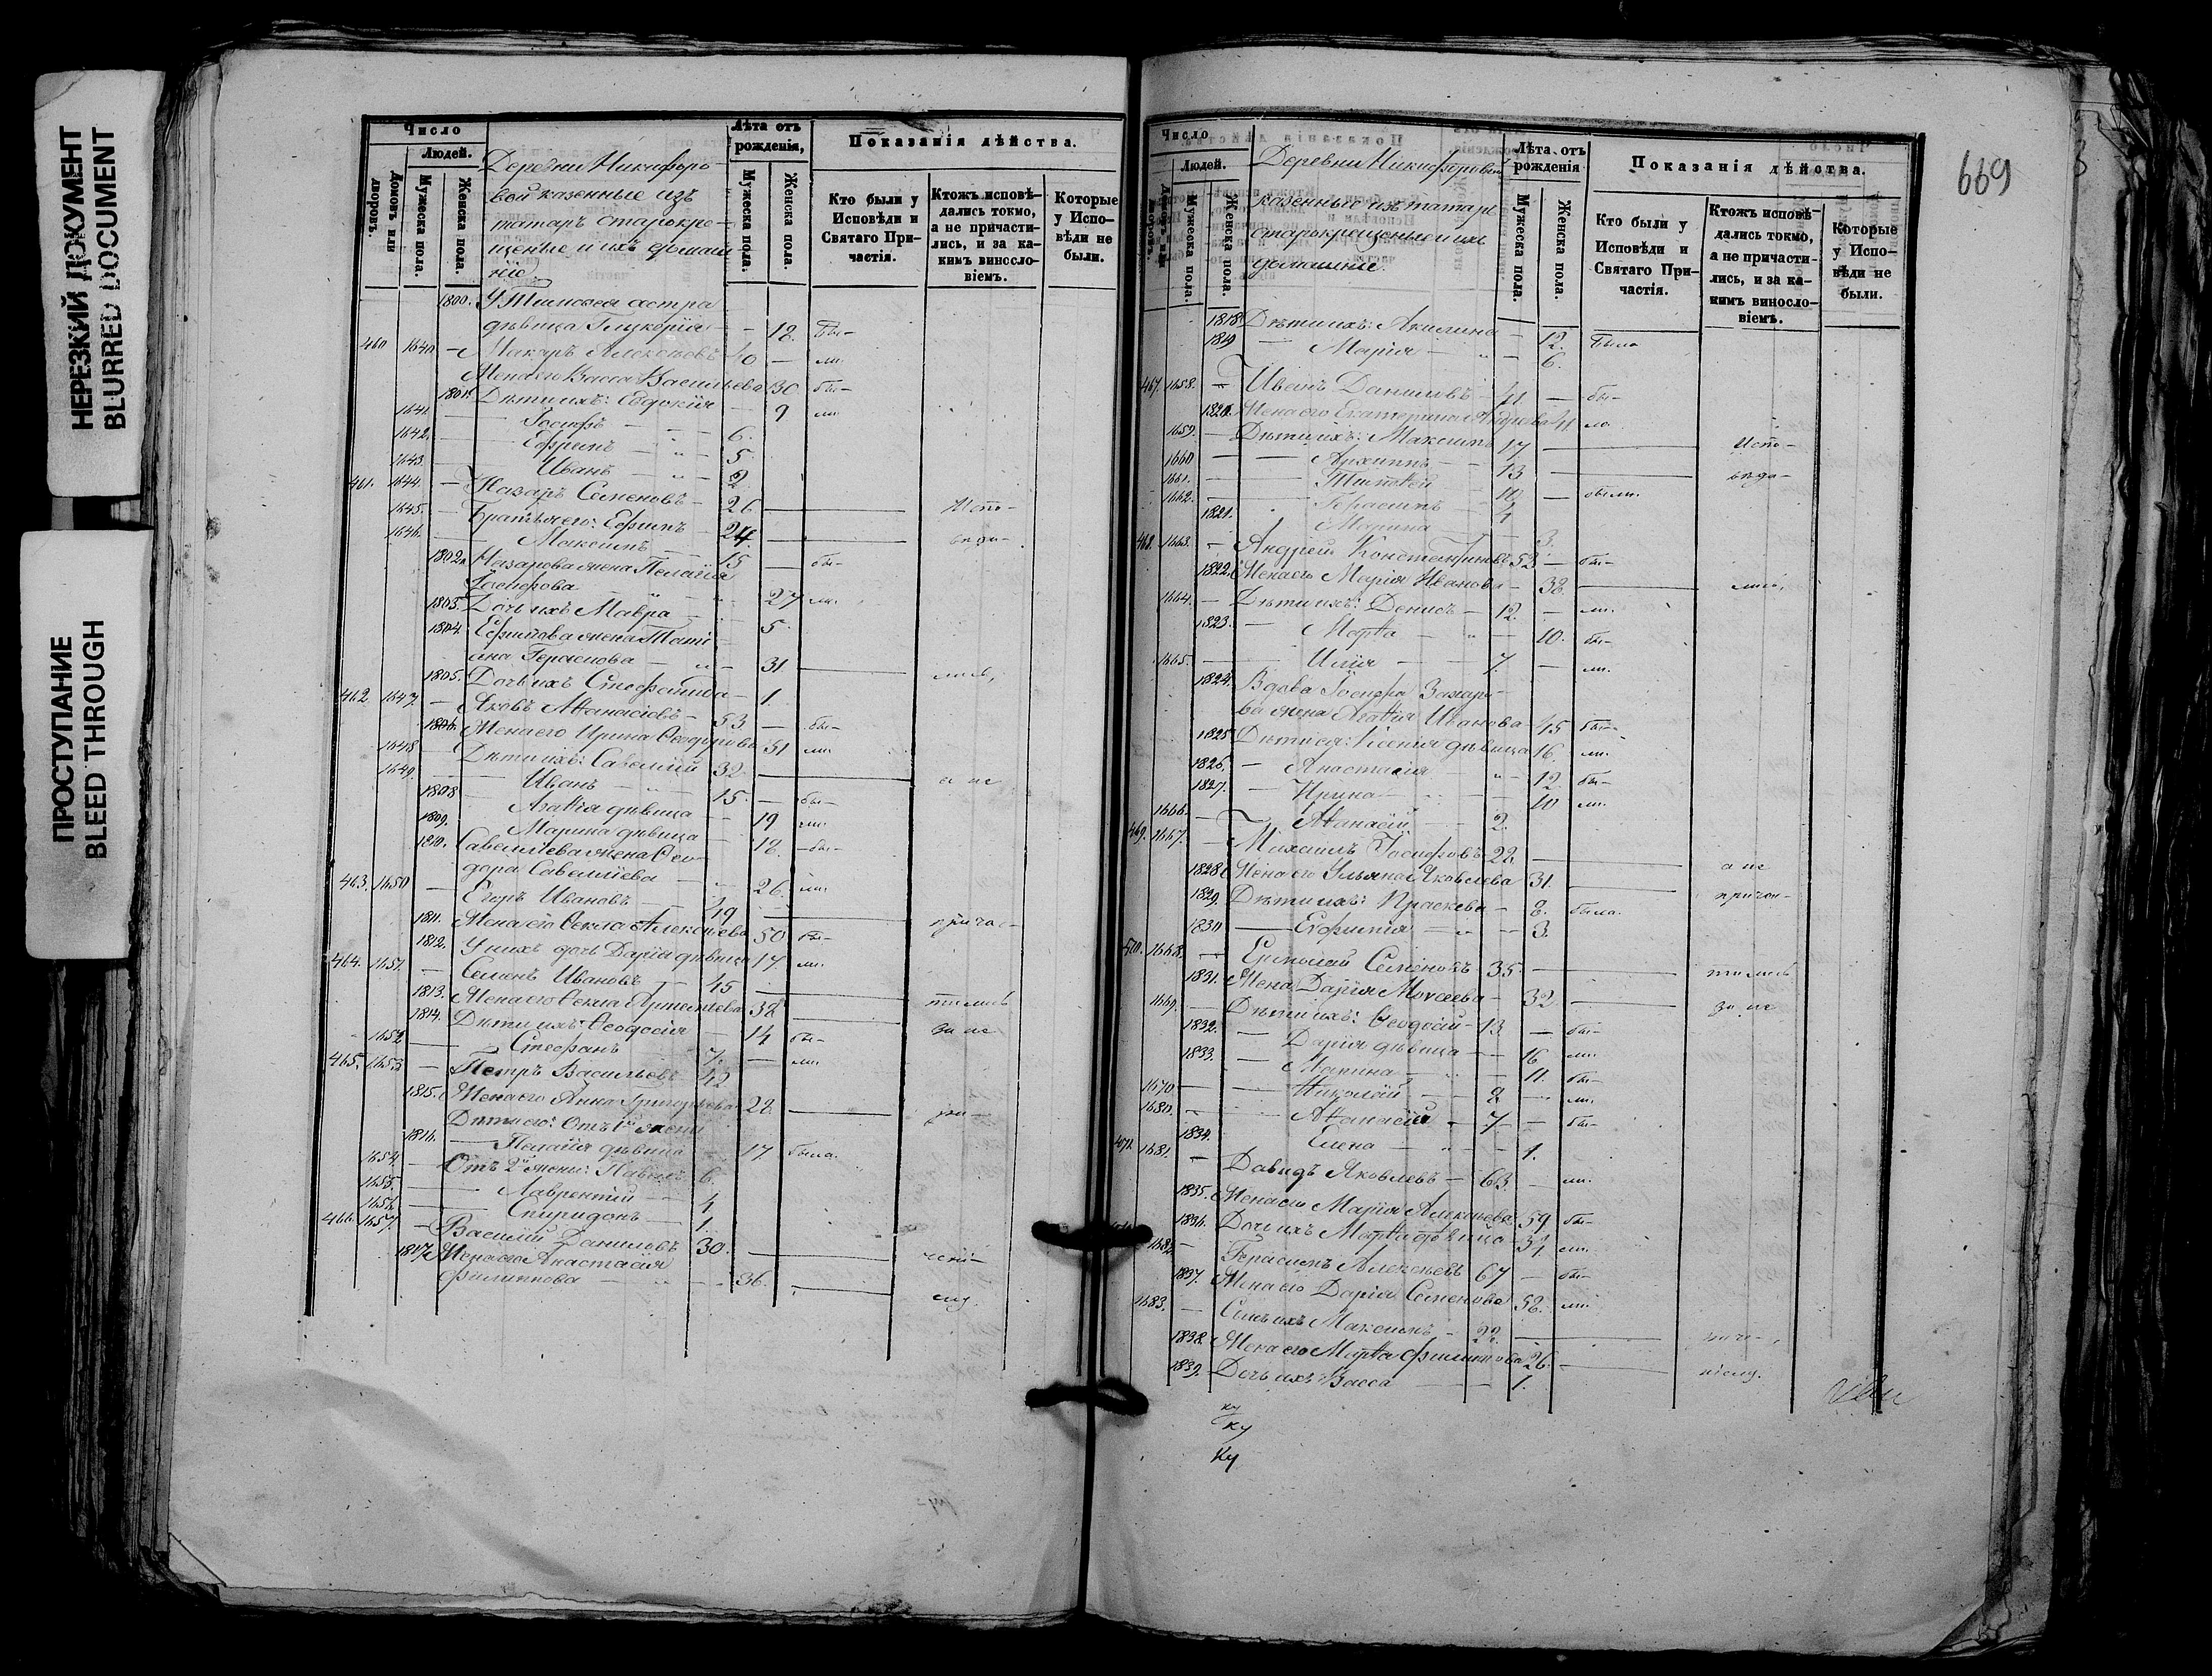 НЕРЕЗКИЙ ДОКУМЕНТ
BLURRED DOCUMENT
ПРОСТУПАНИЕ
BLEED THROUGH
Число
Людей.
Домовъ или дворовъ.
Мужеска пола.
Женска пола.
Деревни Никифоро-
вой казенные изъ
татаръ старокре-
щеные и ихъ домаш-
ніе.
Лѣта отъ рожденія,
Мужеска пола.
Женска пола.
Показанія дѣйства.
Кто были у Исповѣди и Святаго Причастія.
Ктожъ исповѣдались токмо, а не причастились, и за какимъ винословіемъ.
Которые у Исповѣди не были.
1800. У Тимоѳея сестра
дѣвица Гликерія — 18. бы-
460 1640 — Макаръ Алексѣевъ 40 — ли
Жена его Васса Васильева 30. бы-
1801. Дѣти ихъ: Евдокія — 9 ли
1641. Іосифъ — 6.
1642. Ефремъ — 5
1643. Иванъ — 2
461. 1644 — Назаръ Семеновъ — 26 — Испо-
1645. — Братья его: Ефимъ — 24 — вѣда-
1646. Максимъ — 15 — бы-
1802. Назарова жена Пелагія
Іосифова — 27 ли.
1803. Дочь ихъ Мавра — 5
1804. Ефимова жена Тати-
ана Герасимова — 31 — лись,
1805. Дочь ихъ Стефанида — 1.
462 1647. — Яковъ Аѳанасіевъ — 53 — бы-
1806. Жена его Ирина Ѳеодорова 51 ли
1648 — Дѣти ихъ: Савелій 32 — а не
1649. Иванъ — 15. — бы-
1808 Агаѳія дѣвица — 19 ли.
1809. Марина дѣвица — 18. бы-
1810. Савеліева жена Ѳео-
дора Савеліева — 26. ли
463. 1650 — Егоръ Ивановъ — 49 — причас-
1811. Жена его Ѳекла Алексѣева 50 бы-
1812. У нихъ дочь Дарія дѣвица 17. ли.
464. 1651. — Семенъ Ивановъ — 45 — тились
1813. Жена его Ѳекла Артемьева 38 — за не
1814. Дѣти ихъ: Ѳеодосія — 14 бы-
1652 Стефанъ 7. — ли.
465. 1653 — Петръ Васильевъ 42
1815. Жена его Анна Григорьева 28.
Дѣти его: Отъ 1й жены
1816. — Пелагія дѣвица — 17. была.
1654. — Отъ 2й жены: Павелъ 6.
1655 — Лаврентій — 4
1656 — Спиридонъ — 1.
466. 1657. — Василій Даниловъ 30.
1817. Жена его Анастасія
Филиппова — 36.
669
Число
Людей.
Домовъ или дворовъ.
Мужеска пола.
Женска пола.
Деревни Никифоровой
казенные изъ татаръ
старокрещеные и ихъ
домашніе.
Лѣта отъ рожденія
Мужеска пола.
Женска пола.
Показанія дѣйства.
Кто были у Исповѣди и Святаго Причастія.
Ктожъ исповѣдались токмо, а не причастились, и за какимъ винословіемъ.
Которые у Исповѣди не были.
1818 Дѣти ихъ: Акилина — 12. была
1819 — Марія — 6.
467. 1658. — Иванъ Даниловъ — 41. — бы-
1820. Жена его Екатерина 41 ла.
1659. — Дѣти ихъ: Максимъ 17 — Испо-
1660 — Архиппъ — 13 — вѣда-
1661. — Тимоѳей — 10 — были.
1662. — Герасимъ — 4
1821. Марина — 3.
468. 1663. — Андрей Константиновъ 53 — бы-
1822. Жена его Марія Иванова — 38. — лись,
1664. — Дѣти ихъ: Денисъ — 12. — ли.
1823. — Марѳа — 10. бы-
1665. — Илія — 7. — ли.
1824. Вдова Іосифа Захаро-
ва жена Агаѳія Иванова 45 бы-
1825 Дѣти ея: Ксенія дѣвица 16. ли.
1826. — Анастасія — 12 бы-
1827. — Ирина — 10 ли.
1666. — Аѳанасій — 2.
469. 1667. — Михаилъ Іосифовъ 22 — а не
1828. Жена его Ульяна Яковлева 31. — причас-
1829. Дѣти ихъ: Праскева — 8. была.
1830 — Евфимія — 3.
1668. — Ермолай Семеновъ 35 — тились
1831. Жена Дарія Моѵсеева — 32 — за не
1669. — Дѣти ихъ: Ѳеодосій — 13 — бы-
1832. — Дарія дѣвица — 16 ли
1833. — Марина — 11. бы-
1670. — Николай — 8 — ли.
1680. — Аѳанасій — 7 — бы-
1834. Елена — 1.
471. 1681. — Давидъ Яковлевъ — 63. — ли.
1835. Жена его Марія Алексѣева 59 бы-
1836. Дочь ихъ Марѳа дѣвица — 34 ли.
1682. — Герасимъ Алексѣевъ 67 — бы-
1837. Жена его Дарія Семенова 58. ли.
1683. — Сынъ ихъ Максимъ — 22.
1838. Жена его Марѳа Филиппова 26.
1839. Дочь ихъ Васса — 1.
ку
ку
Ку